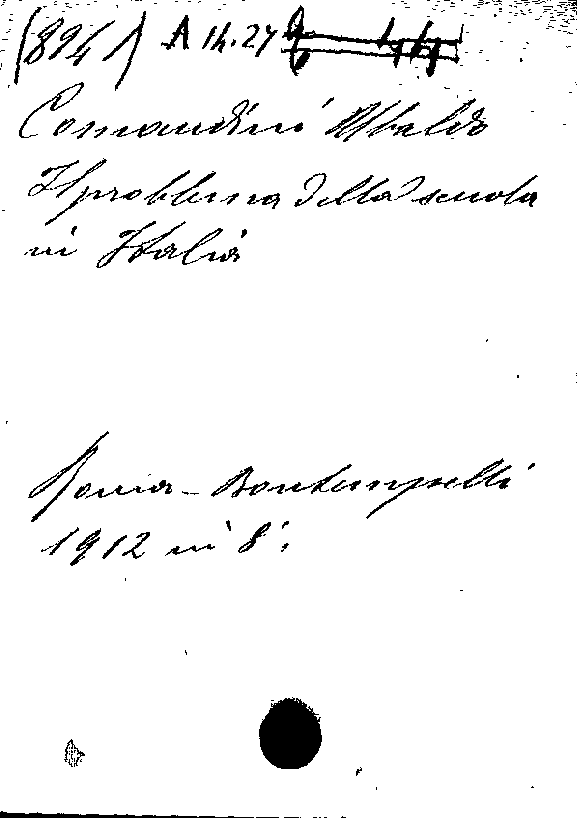 (8941) A 14.27
Comandini Ubaldo
Il problema della scuola
in Italia
Roma - Bontempelli
1912 in 8°.